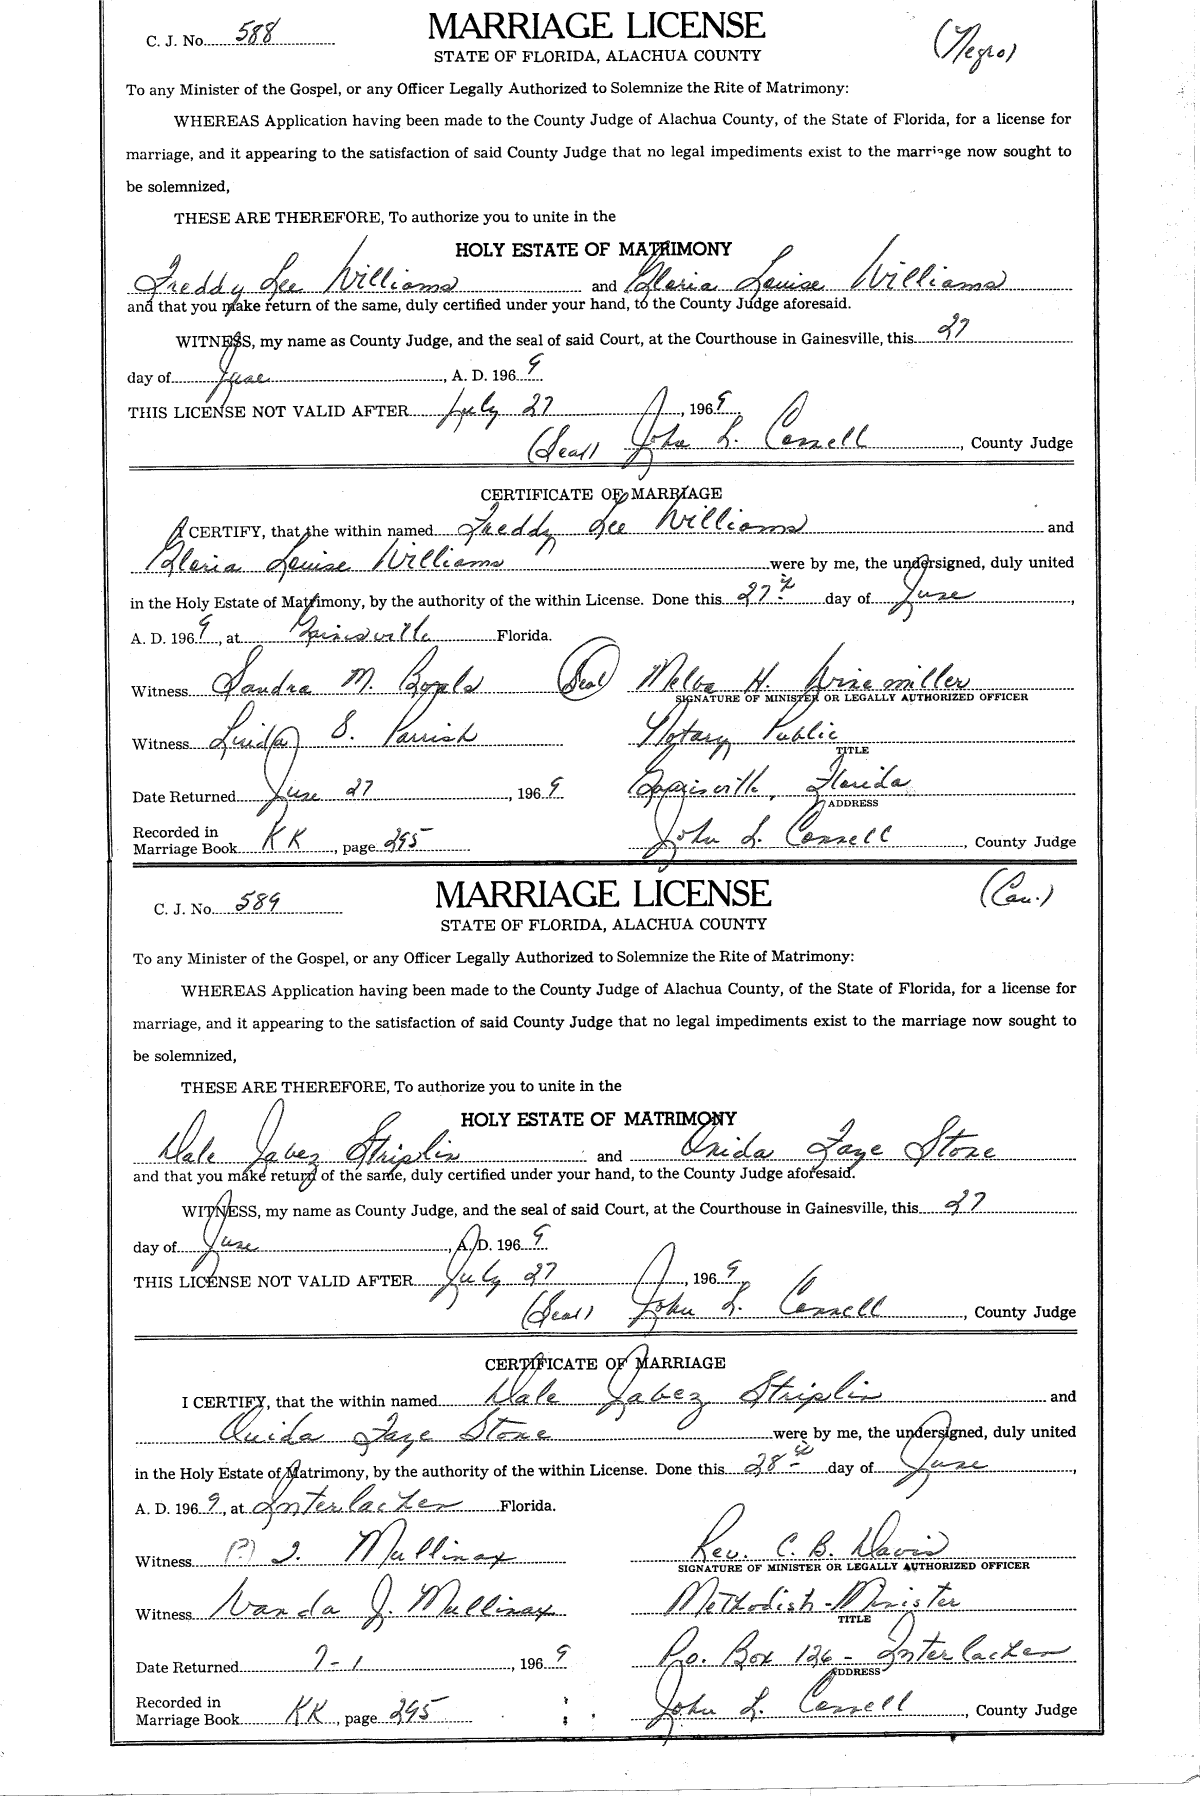 C. J. No. 588
MARRIAGE LICENSE
(Negro)
STATE OF FLORIDA, ALACHUA COUNTY
To any Minister of the Gospel, or any Officer Legally Authorized to Solemnize the Rite of Matrimony:
WHEREAS Application having been made to the County Judge of Alachua County, of the State of Florida, for a license for
marriage, and it appearing to the satisfaction of said County Judge that no legal impediments exist to the marriage now sought to
be solemnized,
THESE ARE THEREFORE, To authorize you to unite in the
HOLY ESTATE OF MATRIMONY
Freddy Lee Williams and Gloria Louise Williams
and that you make return of the same, duly certified under your hand, to the County Judge aforesaid.
WITNESS, my name as County Judge, and the seal of said Court, at the Courthouse in Gainesville, this 27
day of June, A. D. 1969
THIS LICENSE NOT VALID AFTER July 27, 1969
(Seal) John L. Connell, County Judge
CERTIFICATE OF MARRIAGE
I CERTIFY, that the within named Freddy Lee Williams and
Gloria Louise Williams were by me, the undersigned, duly united
in the Holy Estate of Matrimony, by the authority of the within License. Done this 27th day of June,
A. D. 1969, at Gainesville Florida.
Witness Sandra M. (Seal) Melba H. Winemiller
SIGNATURE OF MINISTER OR LEGALLY AUTHORIZED OFFICER
Witness Linda S. Parrish Notary Public
TITLE
Date Returned June 27, 1969 Gainesville, Florida
ADDRESS
Recorded in
Marriage Book KK, page 295 John L. Connell, County Judge
C. J. No. 589
MARRIAGE LICENSE
(Cau.)
STATE OF FLORIDA, ALACHUA COUNTY
To any Minister of the Gospel, or any Officer Legally Authorized to Solemnize the Rite of Matrimony:
WHEREAS Application having been made to the County Judge of Alachua County, of the State of Florida, for a license for
marriage, and it appearing to the satisfaction of said County Judge that no legal impediments exist to the marriage now sought to
be solemnized,
THESE ARE THEREFORE, To authorize you to unite in the
HOLY ESTATE OF MATRIMONY
Dale Jabez Striplin and Ouida Faye Stone
and that you make return of the same, duly certified under your hand, to the County Judge aforesaid.
WITNESS, my name as County Judge, and the seal of said Court, at the Courthouse in Gainesville, this 27
day of June, A. D. 1969
THIS LICENSE NOT VALID AFTER July 27, 1969
(Seal) John L. Connell, County Judge
CERTIFICATE OF MARRIAGE
I CERTIFY, that the within named Dale Jabez Striplin and
Ouida Faye Stone were by me, the undersigned, duly united
in the Holy Estate of Matrimony, by the authority of the within License. Done this 28th day of June,
A. D. 1969, at Interlachen Florida.
Witness (?) J. Mullinax Rev. C. B. Davis
SIGNATURE OF MINISTER OR LEGALLY AUTHORIZED OFFICER
Witness Wanda J. Mullinax Methodist-Minister
TITLE
Date Returned 7-1, 1969 P.o. Box 126 - Interlachen
ADDRESS
Recorded in
Marriage Book KK, page 295 John L. Connell, County Judge